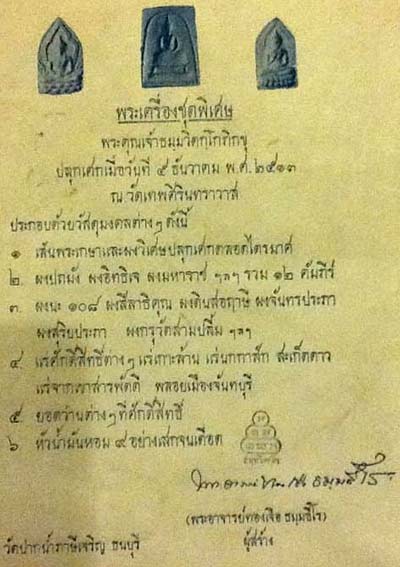 พระเครื่องชุดพิเศษ
พระคุณเจ้าธมฺมวิตกฺโกภิกขุ
ปลุกเศกเมื่อวันที่ ๕ ธันวาคม พ.ศ.๒๕๑๓
ณ วัดเทพศิรินทราวาส
ประกอบด้วยวัสดุมงคลต่างๆ ดังนี้
๑ เส้นพระเกษาและผงวิเศษปลุกเศกตลอดไตรมาศ
๒. ผงปถมัง ผงอิทธิเจ ผงมหาราช ฯลฯ รวม ๑๒ คัมภีร์
๓. ผงนะ ๑๐๘ ผงสีลาธิคุณ ผงดินสอฤาษี ผงจันทรประภา
ผงสุริยประภา ผงกรุวัดสามปลื้ม ฯลฯ
๔ แร่ศักดิ์สิทธิ์ต่างๆ แร่เกาะล้าน แร่นกกาสัก สะเก็ดดาว
แร่จากเขาสารพัดดี พลอยเมืองจันทบุรี
๕ ยอดว่านต่างๆ ที่ศักดิ์สิทธิ์
๖ หัวน้ำมันหอม ๙ อย่างเสกจนเดือด
ธมฺมธีโร
(พระอาจารย์ทองเจือ ธมฺมธีโร)
วัดปากน้ำภาษีเจริญ ธนบุรี ผู้สร้าง